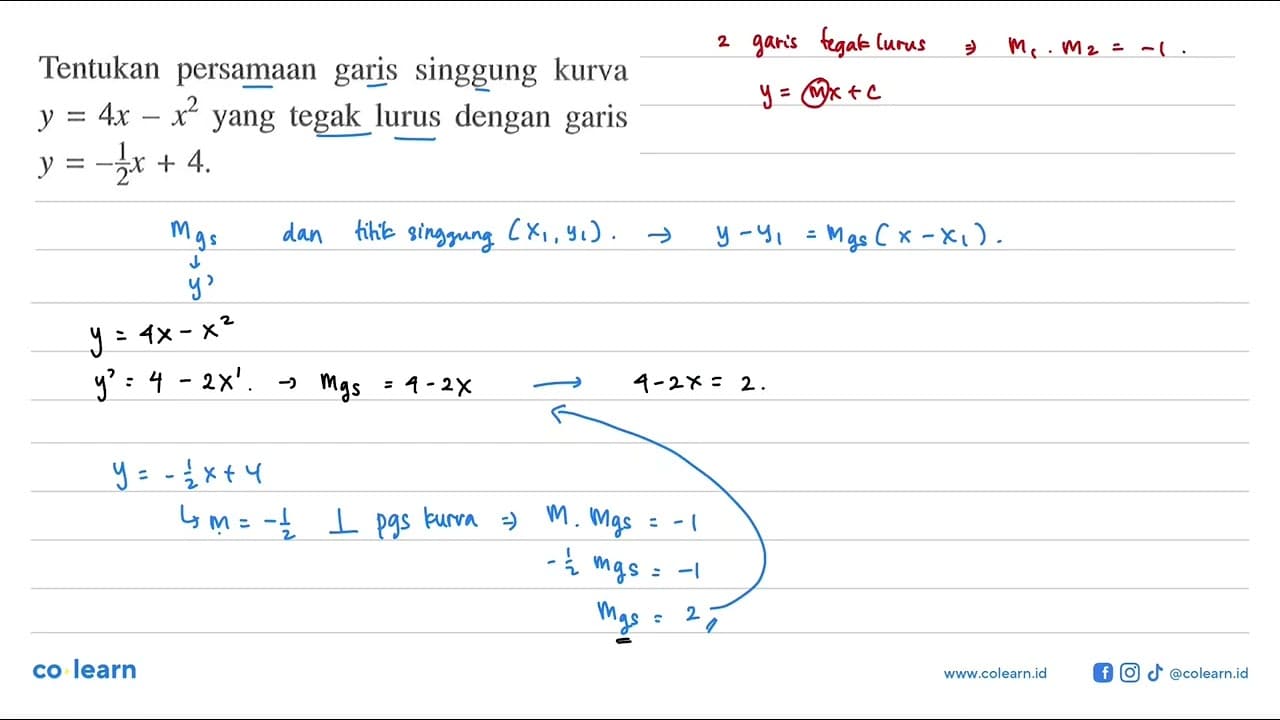 Tentukan persamaan garis singgung kurva
y = 4x − x² yang tegak lurus dengan garis
y = −1/2x + 4.
2 garis tegak lurus ⇒ m₁ . m₂ = -1 .
y = mx + c
mgs dan titik singgung (x₁, y₁) . → y - y₁ = mgs (x - x₁) .
↓
y'
y = 4x - x²
y' = 4 - 2x¹ . → mgs = 4 - 2x → 4 - 2x = 2 .
y = - 1/2 x + 4
↳ m = - 1/2 ⊥ pgs kurva ⇒ m . mgs = -1
- 1/2 mgs = -1
mgs = 2
co learn
www.colearn.id
@colearn.id